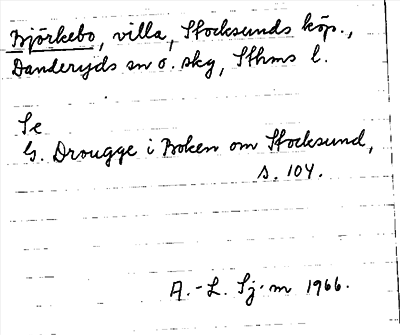 Björkebo, villa, Stocksunds köp.,
Danderyds sn o. skg, Sthms l.
Se
G. Drougge i Boken om Stocksund,
s. 104.
A.-L. Sj-m 1966.